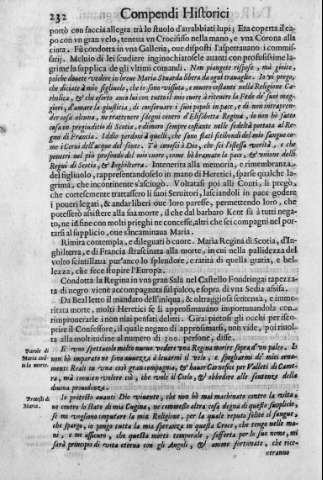 232 Compendi Historici
portò con faccia allegra trà lo stuolo d'arrabbiati lupi; Era coperta il capo con un gran velo, teneva un Crocifisso nella mano, e vna Corona alla
cinta. Fù condotta in vna Galleria, oue disposti l'aspettauano i commissarij. Meluio di lei scudiere inginocchiatosele auanti con profusissime lagrime la supplica de gli vltimi comandi. Non piangete rispose, mà gioite,
poiche douete vedere in breue Maria Stuarda libera da ogni trauaglio. Io vi prego,
che diciate à mio figliuolo, che io sono vissuta, e muoro costante nella Religione Cattolica, & che esorto anco lui con tutto il mio cuore à ritenere la Fede de' suoi maggiori, d'amare la giustitia, di conseruare i suoi popoli in pace, e di non intraprendere cosa alcuna,
Regni di Francia. Iddio perdoni à quelli, che sono stati sitibondi del mio sangue come i Cerui dell'acque del fonte. Tù conosci ò Dio, che sei l'istessa verità, e che
penetri nel più profondo del mio cuore, come hò bramato la pace, & vnione delli
Regni di Scotia, & Inghilterra. Intenerita alla memoria, e rimembranza,
del figliuolo, rappresentandoselo in mano di Heretici, sparse qualche lagrima, che incontinente s'asciugò. Voltatasi poi alli Conti, li pregò,
che cortesemente trattassero li suoi Seruitori, lasciandoli in pace godere
i poueri legati, & andar liberi oue loro paresse, permettendo loro, che
potessero assistere alla sua morte, il che dal barbaro Kent fù à tutti negato, ne in fine con molti prieghi ne concesse, altri che sei compagni nel portarsi al supplicio, oue s'incaminaua Maria.
Rimira contempla, e dileguati ò cuore. Maria Regina di Scotia, d'Inghilterra, e di Francia strascinata alla morte, in cui nella pallidezza del
volto scintillaua pur'anco lo splendore, e ratità di quella gratia, e bellezza, che fece stupire l'Europa.
Condotta la Regina in vna gran Sala nel Castello Fondringai tapezzata di negro viene accompagnata sù'l palco, e sopra di vna Sedia assisa.
Da Bealletto il mandato dell'iniqua, & oltraggiosa sentenza, e immeritata morte, molti Heretici se li approssimauano importunandola con
rimprouerarle i non mai pensati delitti. Girai pietosi gli occhi per scoprire il Confessore, il quale negato di approssimarsi, non vide, poi riuolta alla moltitudine al numero di 200. persone, disse.
Parole di Maria auanti la morte.
E' vno spettacolo molto nuouo vedere una Regina morire sopra d'un palco. Io
non hò imparato ne sono auuezza à leuarmi il velo, e spogliarmi de' miei ornamenti Reali in vna così gran compagnia, & hauer Carnefici per Valletti di Camera, mà conuien volere ciò, che vole il Cielo, & obbedire alle sentenze della
diuina prouidenza.
Protesti di Maria.
Io protesto auanti Dio viuente, che non hò mai machinato contro la vita,
ne contro lo stato di mia Cugina, ne commesso altra cosa degna di questo supplicio,
se mi vogliono imputare la mia Religione, per la quale reputo felice il sangue,
che spargo, io pongo tutta la mia speranza in questa Croce, che tengo nelle mani, e mi assicuro, che questa morte temporale, sofferta per il suo nome, mi
sarà principio di vita eterna con gli Angeli, & anime fortunate, che riceueranno